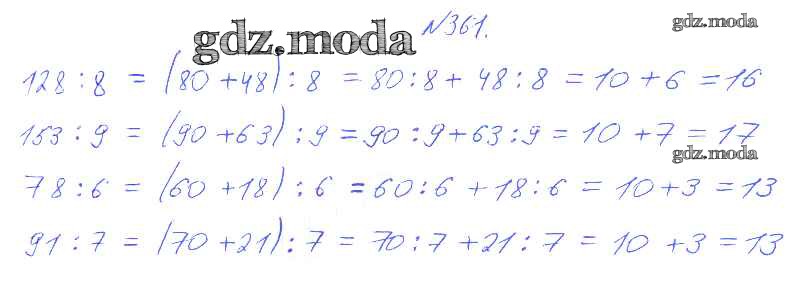 gdz.moda №361. gdz.moda
128 : 8 = (80 + 48) : 8 = 80 : 8 + 48 : 8 = 10 + 6 = 16
153 : 9 = (90 + 63) : 9 = 90 : 9 + 63 : 9 = 10 + 7 = 17
gdz.moda
78 : 6 = (60 + 18) : 6 = 60 : 6 + 18 : 6 = 10 + 3 = 13
91 : 7 = (70 + 21) : 7 = 70 : 7 + 21 : 7 = 10 + 3 = 13